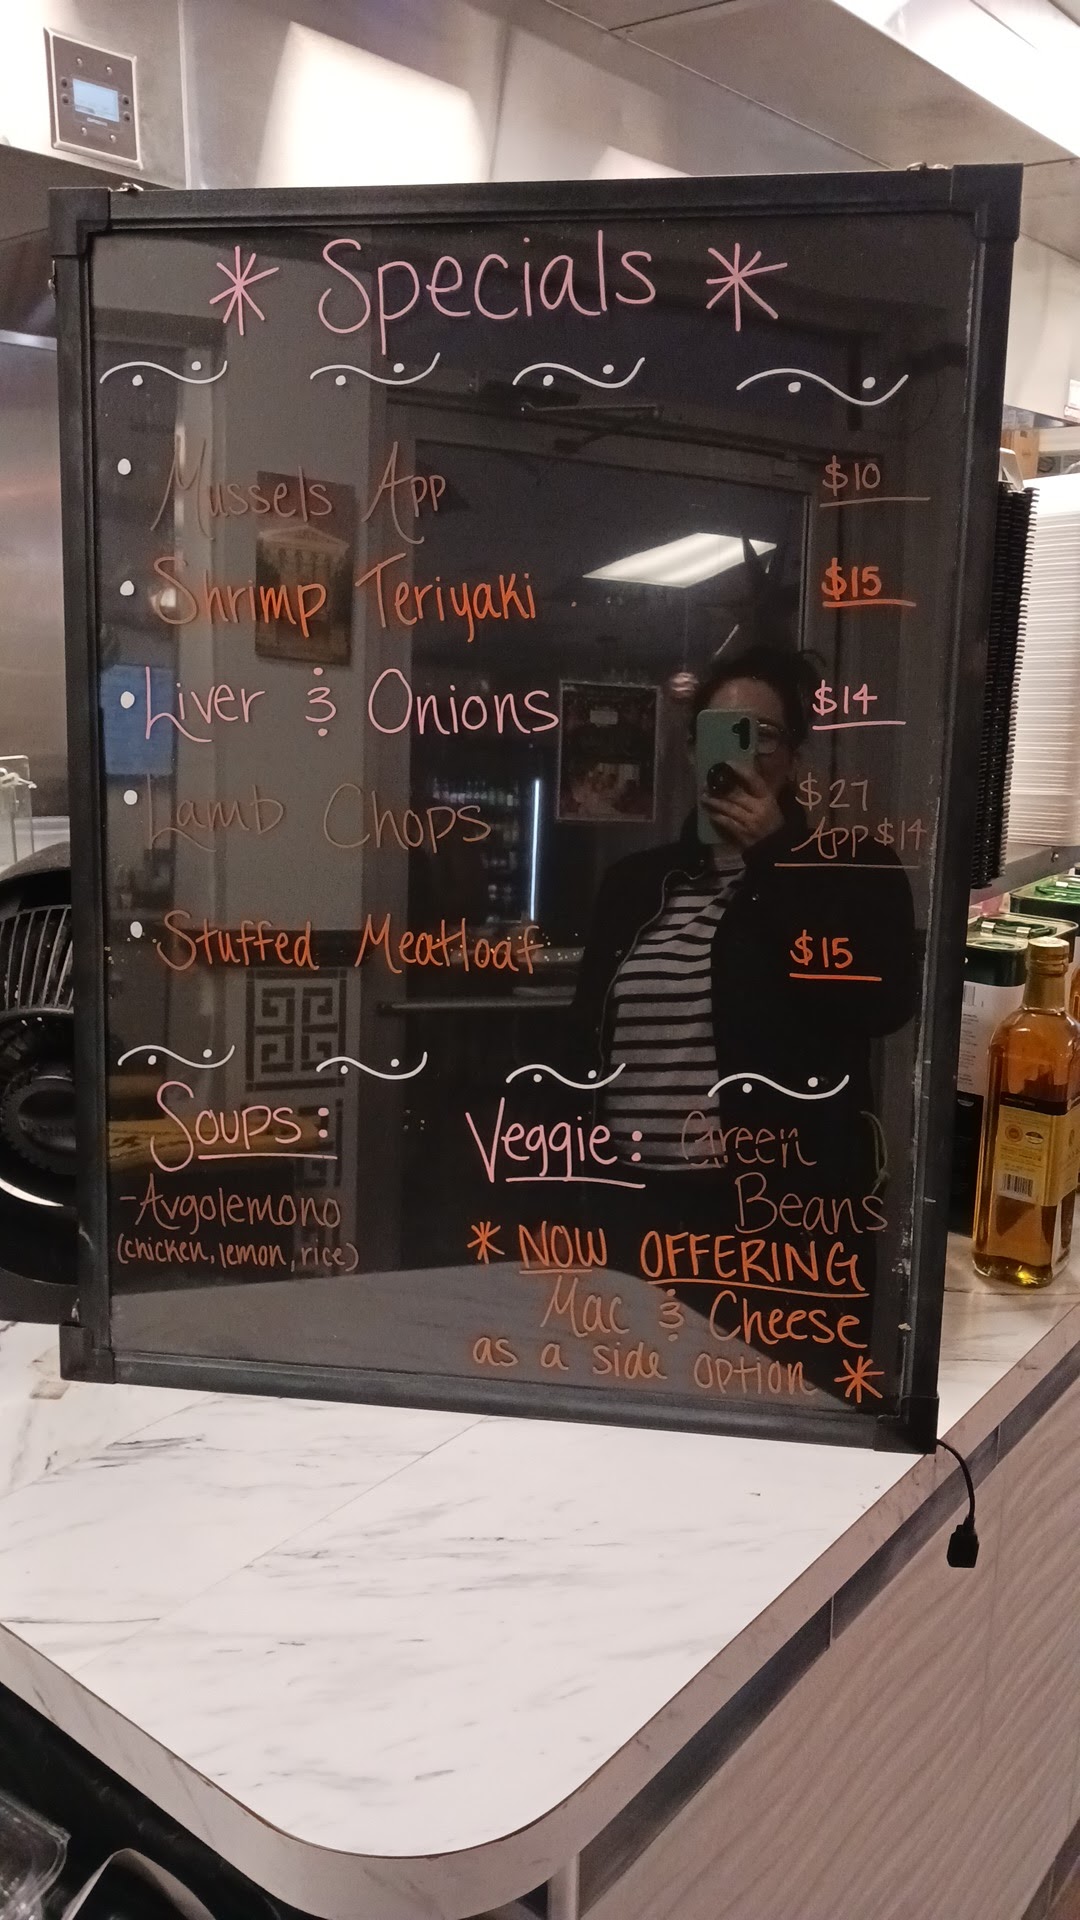 * Specials *
• Mussels App $10
• Shrimp Teriyaki $15
• Liver & Onions $14
• Lamb Chops $27
App $14
• Stuffed Meatloaf $15
Soups:
-Avgolemono
(chicken, lemon, rice)
Veggie: Green
Beans
* NOW OFFERING
Mac & Cheese
as a side option *